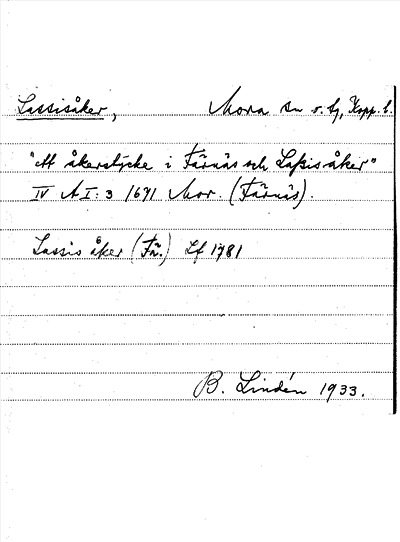 Lassisåker, Mora sn o. tg, Kopp. l.
"Ett åkerstycke i Färnäs och Laßisåker"
IV A I: 3 1671 Mor. (Färnäs).
Lassis åker (Fä.) Lf 1781
B. Lindén 1933.